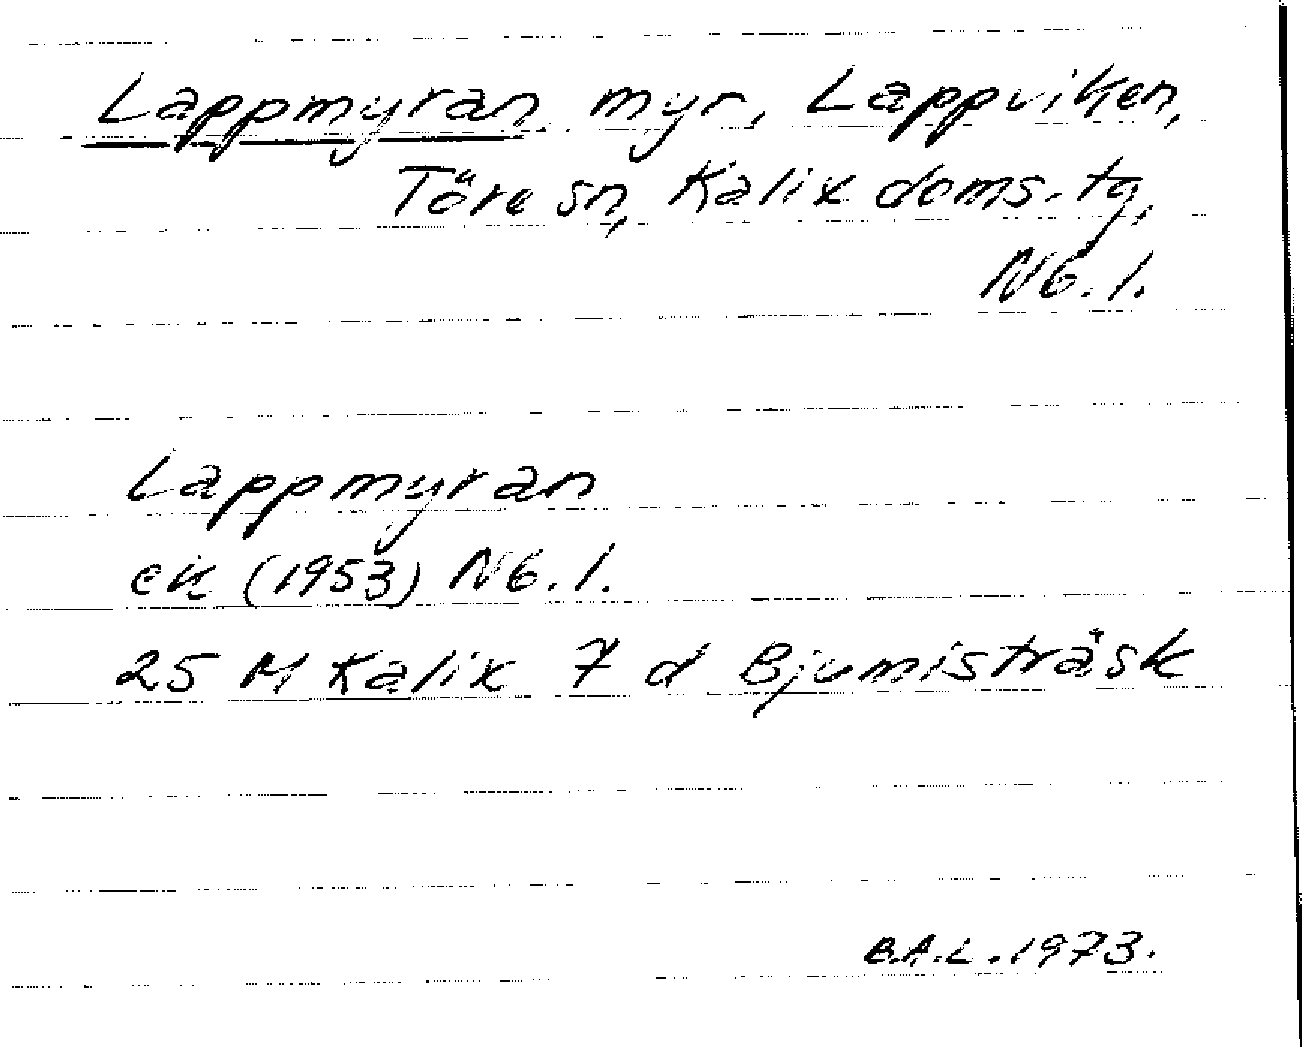 Lappmyran myr, Lappviken,
Töre sn, Kalix doms. tg,
Nb. l.
Lappmyran
ek (1953) Nb. l.
25 M Kalix 7 d Bjumisträsk
B.A.L. 1973.